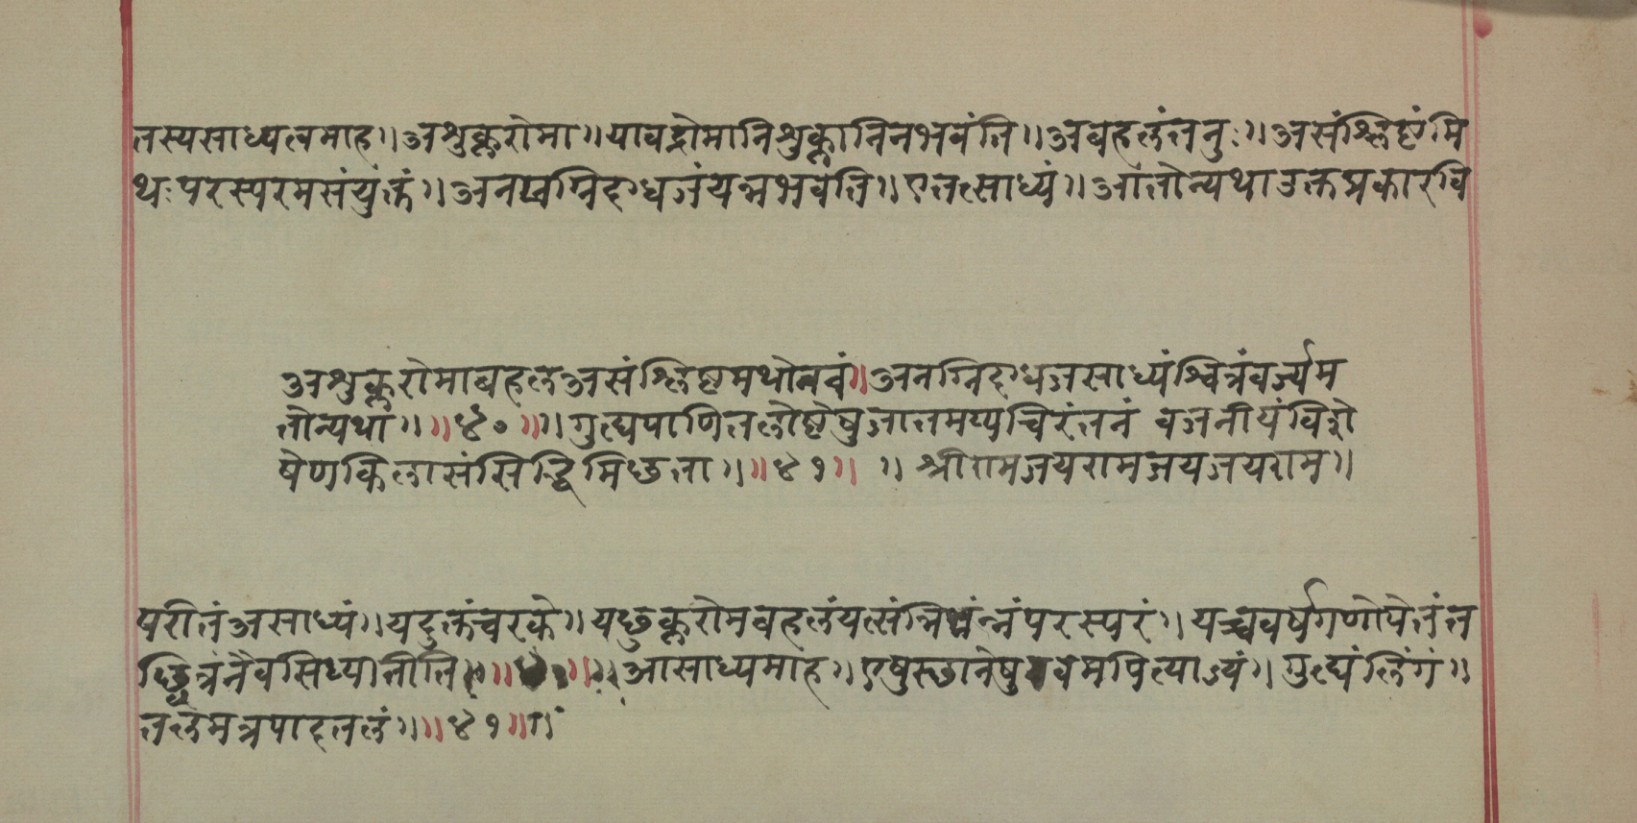 तस्यसाध्यत्वमाह॥अशुक्लरोमा॥यावद्रोमानिशुक्लानिनभवंति॥अबहलंतनुः॥असंश्लिष्टंमि
थःपरस्परमसंयुक्तं॥अनखग्निदग्धजंयन्मभवेति॥एतत्साध्यं॥आंतोन्यथाउक्तप्रकारवि
अशुक्लरोमाबहलअसंश्लिष्टमथोनवं॥अनग्निदग्धजसाध्यंश्वित्रंवर्ज्यम
तोन्यथा॥॥४०॥॥गुह्यपाणितलोष्टेषुजातमप्यचिरंतनं वजनीयंविशे
षेणकिलासंसिद्धिमिछता॥॥४१॥ ॥श्रीरामजयरामजयजयराम॥
परीतंअसाध्यं॥यदुक्तंचरके॥यछुक्लरोमबहलंयत्संन्निभंन्नंपरस्परं॥यच्चवर्षगणोपेतंत
छ्वित्रंनैवसिध्यतीति॥॥४०॥॥आसाध्यमाह॥एषुस्छानेषुनवमपित्याज्यं॥गुह्यंलिंगं॥
तलमत्रपादतलं॥॥४१॥॥